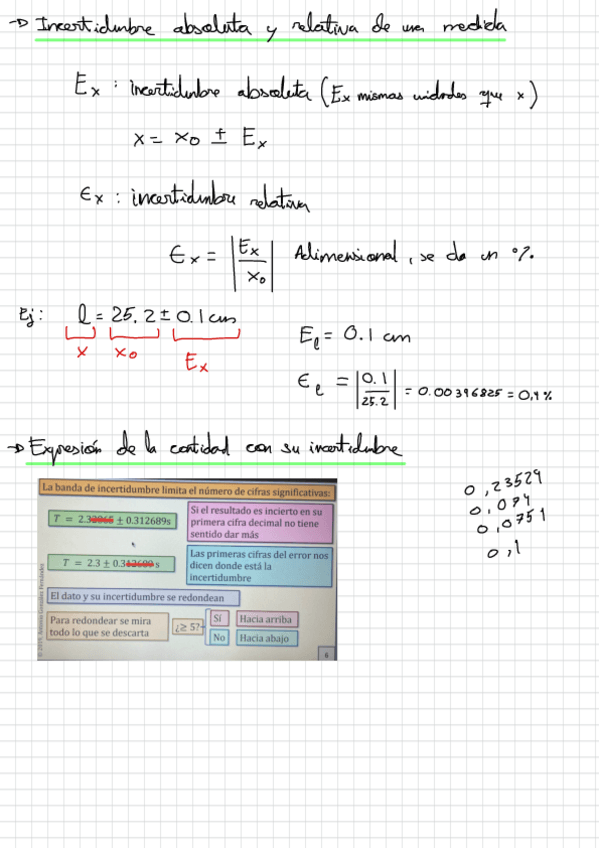 → Incertidumbre absoluta y relativa de una medida
Ex : incertidumbre absoluta (Ex mismas unidades que x)
x = x₀ ± Ex
ϵx : incertidumbre relativa
ϵx = |Ex / x₀| Adimensional, se da en %.
Ej: l = 25.2 ± 0.1 cm
x x₀ Ex
El = 0.1 cm
ϵl = |0.1 / 25.2| = 0.00396825 = 0,4%
→ Expresión de la cantidad con su incertidumbre
La banda de incertidumbre limita el número de cifras significativas:
T = 2.32065 ± 0.312689s
Si el resultado es incierto en su
primera cifra decimal no tiene
sentido dar más
T = 2.3 ± 0.312689 s
Las primeras cifras del error nos
dicen donde está la
incertidumbre
El dato y su incertidumbre se redondean
Para redondear se mira
todo lo que se descarta
¿≥ 5?
Sí Hacia arriba
No Hacia abajo
6
0,23529
0,074
0,0751
0,1